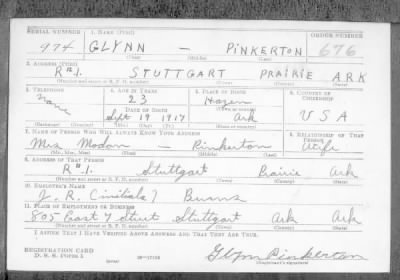 SERIAL NUMBER 1. NAME (Print) ORDER NUMBER
474 GLYNN — PINKERTON 676
(First) (Middle) (Last)
2. ADDRESS (Print)
R#1. STUTTGART PRAIRIE ARK
(Number and street or R. F. D. number) (Town) (County) (State)
3. TELEPHONE 4. AGE IN YEARS 5. PLACE OF BIRTH 6. COUNTRY OF CITIZENSHIP
None 23 Hazen
DATE OF BIRTH (Town or county)
Sept 19 1917 Ark U S A
(Exchange) (Number) (Mo.) (Day) (Yr.) (State or country)
7. NAME OF PERSON WHO WILL ALWAYS KNOW YOUR ADDRESS 8. RELATIONSHIP OF THAT PERSON
Mrs — Pinkerton Wife
(Mr., Mrs., Miss) (First) (Middle) (Last)
9. ADDRESS OF THAT PERSON
R#1. Stuttgart Prairie Ark
(Number and street or R. F. D. number) (Town) (County) (State)
10. EMPLOYER'S NAME
J. R. (initials) Burns
11. PLACE OF EMPLOYMENT OR BUSINESS
805 East 7 Street Stuttgart Ark Ark
(Number and street or R. F. D. number) (Town) (County) (State)
I AFFIRM THAT I HAVE VERIFIED ABOVE ANSWERS AND THAT THEY ARE TRUE.
REGISTRATION CARD
D. S. S. Form 1 (over) 16—17105 Glynn Pinkerton
(Registrant's signature)